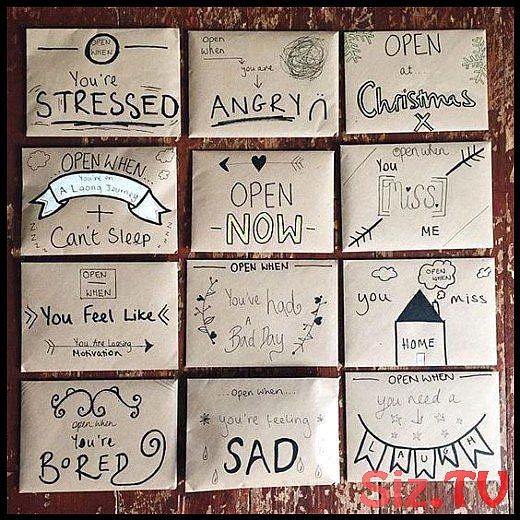 OPEN
WHEN
You're
STRESSED
OPEN
When
you are
ANGRY
OPEN
at...
Christmas
X
OPEN WHEN...
You're on
A Loong Journey
+
Can't Sleep
z z z
OPEN
-NOW-
open when
You
Miss
ME
OPEN
WHEN
You Feel Like
You Are Loosing
Motivation
OPEN WHEN
You've had
A
Bad Day
OPEN
WHEN
you miss
HOME
open when
You're
BORED
...open when....
you're feeling
SAD
OPEN WHEN
you need a
LAUGH
Siz.TV